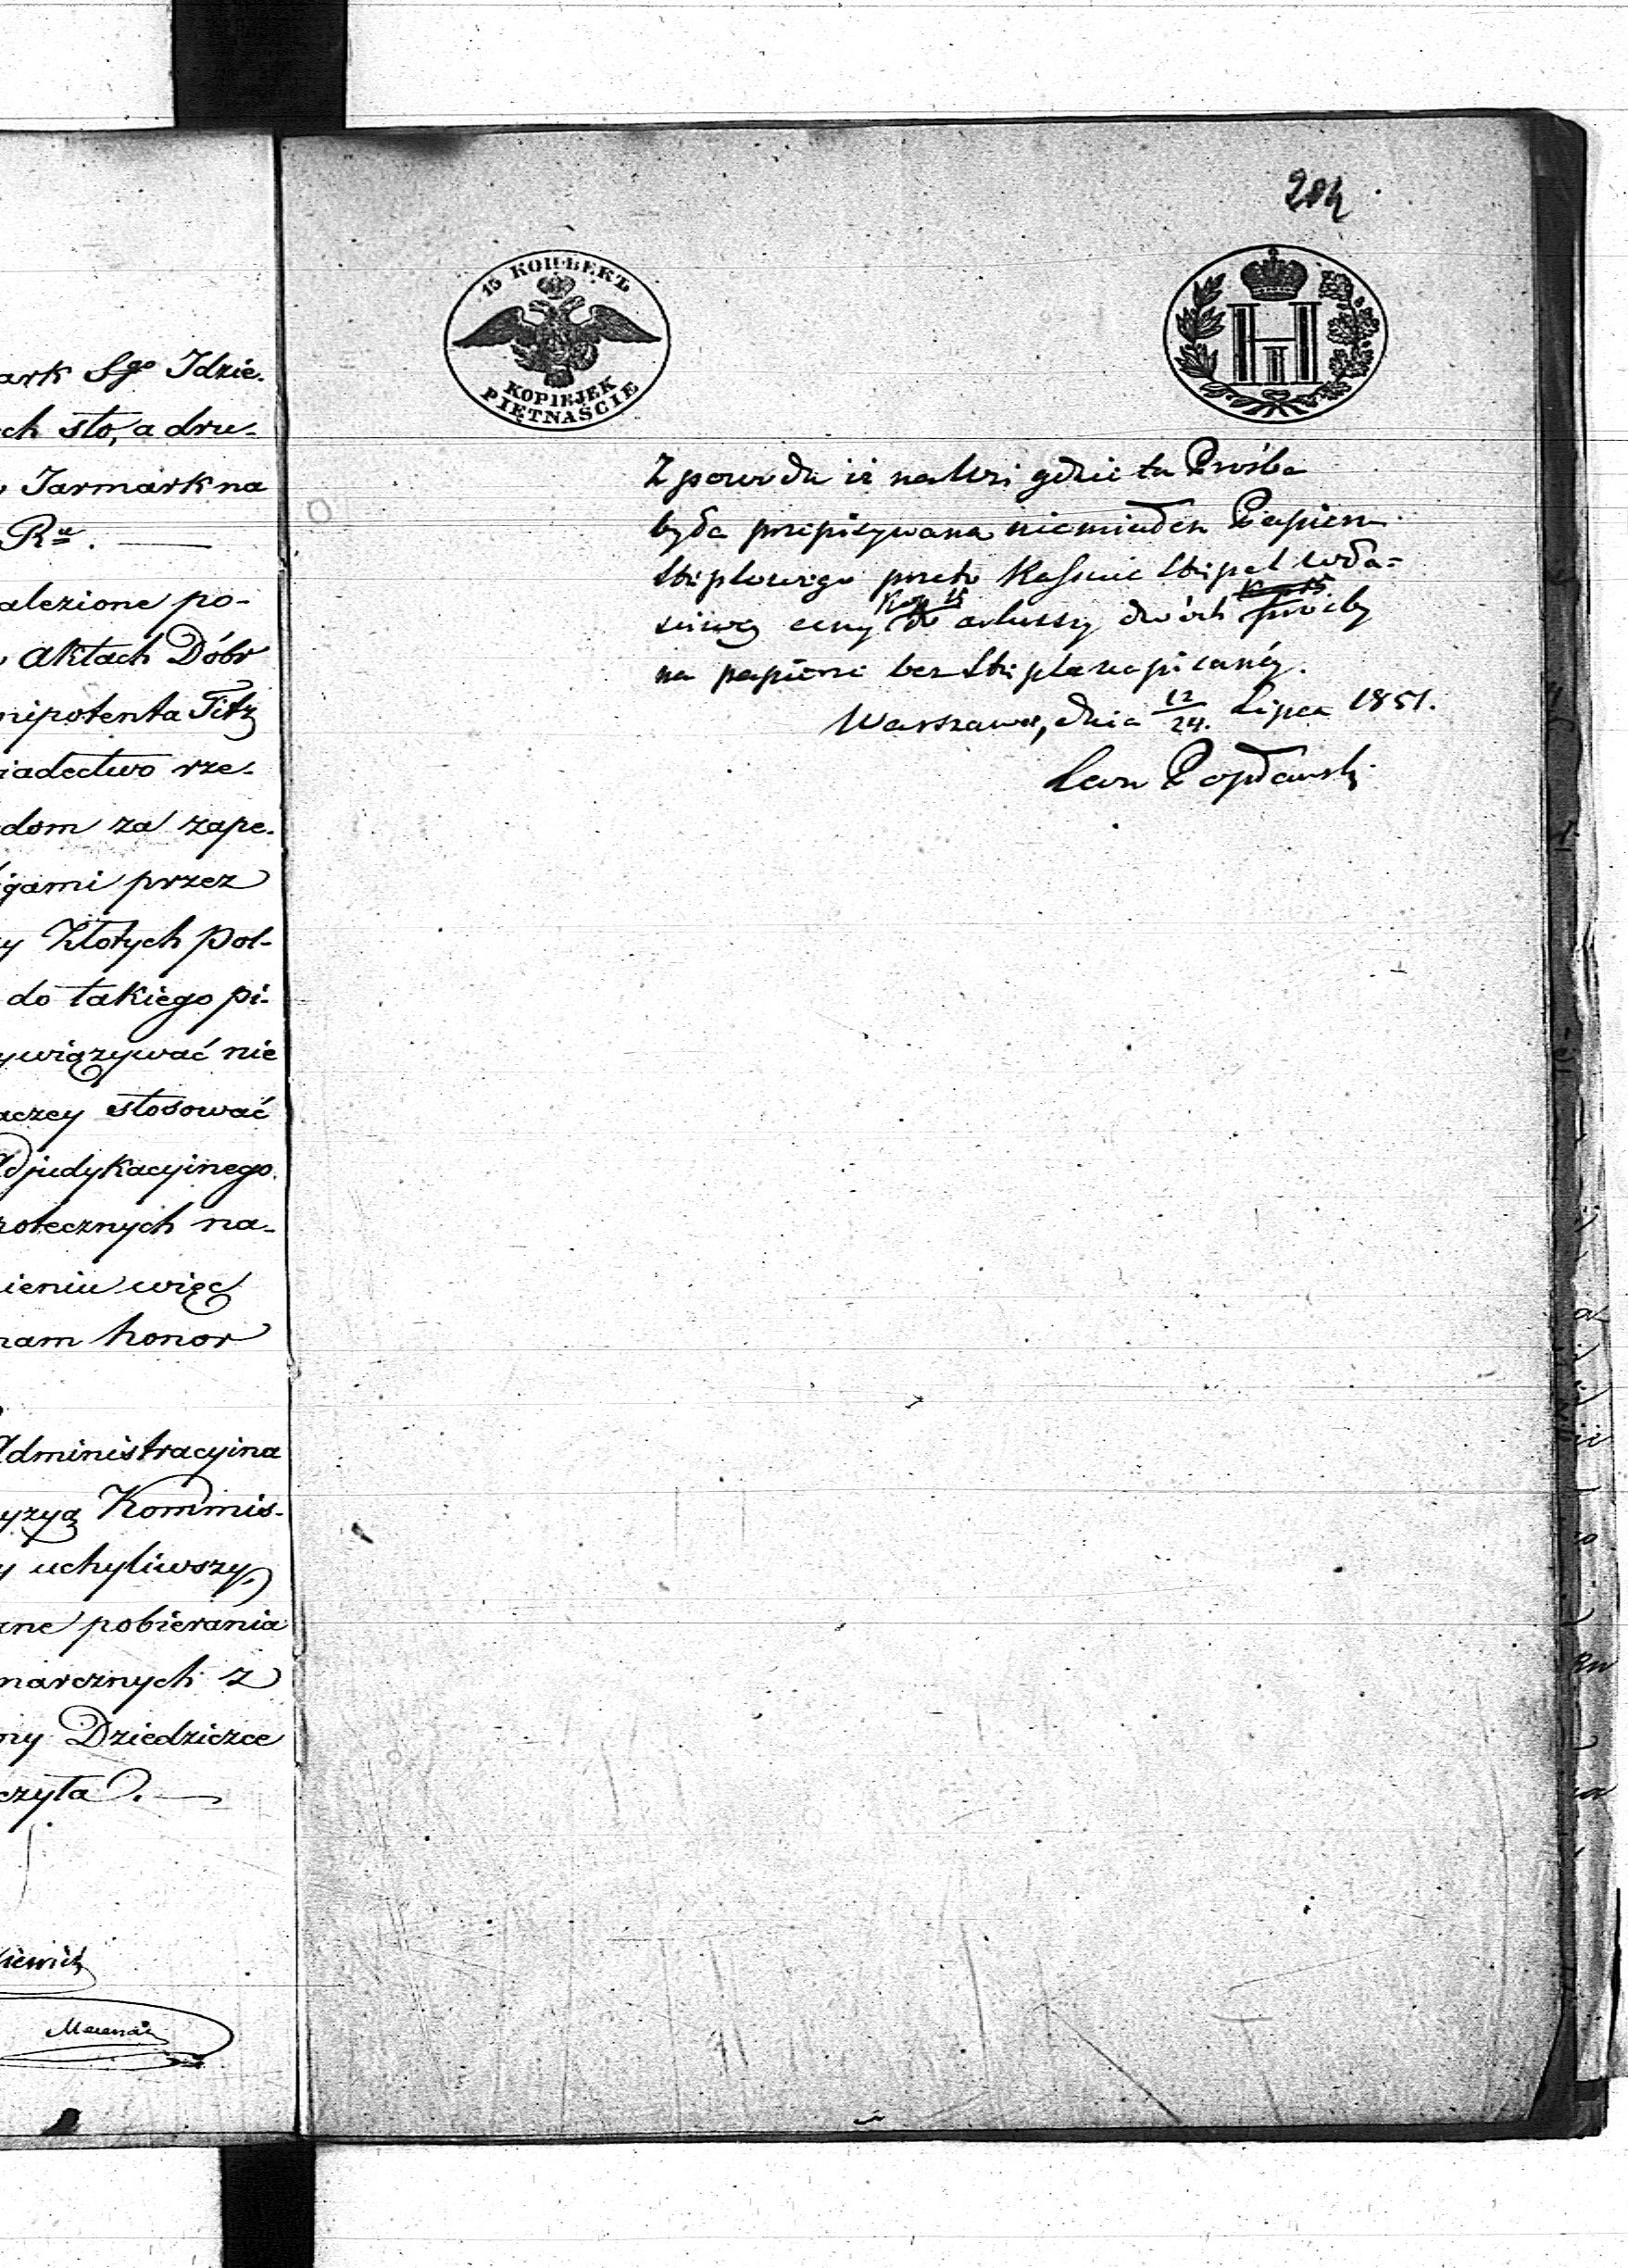 ark Sgo Idzie.
ch sto, a dru-
Jarmark na
Ru.
alezione po-
aktach Dóbr
nipotenta Titz
iadectwo rze-
dom za zape.
gami przez
y Złotych Pol-
do takiego pi-
ywiązywać nie
aczey stosować
Adjudykacyinego.
rotecznych na-
ieniu więc
nam honor
Administracyina
yzyą Kommis-
y uchyliwszy,
ane pobierania
narcznych z
ny Dziedziczce
czyła.
kiewicz
204
15 КОПѢЕКЪ
KOPIEJEK
PIĘTNAŚCIE
Z powodu iż na Wsi gdzie ta Prośba
była przepisywana niemiałem Papieru
Stęplowego przeto Kassuie Stępel wła-
ściwey ceny Kop 15 do arkuszy dwóch prośby
na papierze bez Stępla napisanéy.
Warszawa, dnia 12/24. Lipca 1851.
Leon Popławski